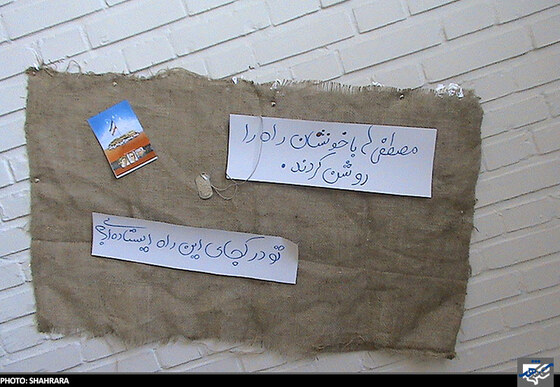 مصطفی ها با خونشان راه را
روشن کردند.
تو در کجای این راه ایستاده‌ای؟
PHOTO: SHAHRARA